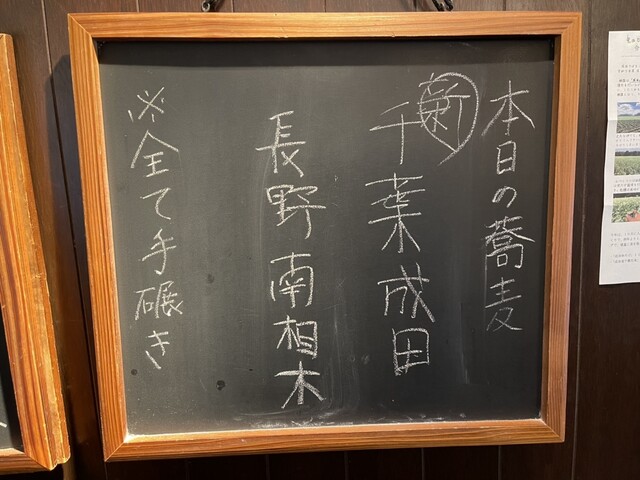 本日の蕎麦
新
千葉成田
長野南相木
※全て手碾き